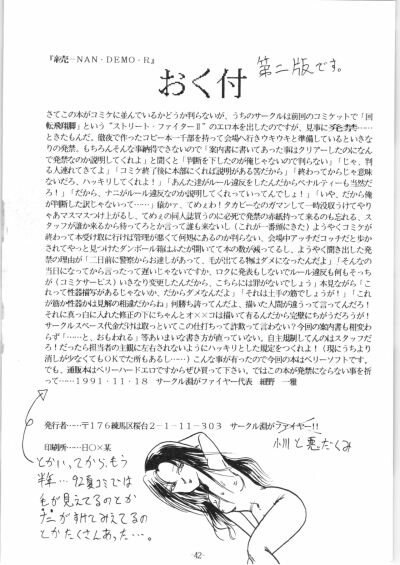 『痴売=NAN・DEMO・R』
おく付
第二版です。
さてこの本がコミケに並んでいるかどうか判らないが、うちのサークルは前回のコミケットで「回
転飛翔脚」という“ストリート・ファイターⅡ”のエロ本を出したのですが、見事に
ときたもんだ。徹夜で作ったコピー本一千部を持って会場へ行きウキウキと準備しているといきな
りの発禁。もちろんそんな事納得できないので「案内書に書いてあった事はクリアーしたのになん
で発禁なのか説明してくれよ」と聞くと「判断を下したのが俺じゃないので判らない」「じゃ、判
る人連れてきてよ」「コミケ終了後に本部にくれば説明がある筈だから」「終わってからじゃ意味
ないだろ、ハッキリしてくれよ!」「あんた達がルール違反をしたんだからペナルティーも当然だ
ろ!」「だから、ナニがルール違反なのか説明してくれっていってんでしょ!」「いや、だから俺
が判断した訳じゃないって……」猿かァ、てめぇわ!タカビーなのガマンして一時没収うけてやり
ゃあマスマスつけ上がるし、てめぇの同人誌買うのに必死で発禁の赤紙持って来るのも忘れる、ス
タッフが誰か来るから待ってろとか言って誰も来ないし(これが一番頭にきた)ようやくコミケが
終わって本受け取に行けば管理が悪くて何処にあるのか判らない、会場中アッチだコッチだと歩か
されてやっと見つけたダンボール箱はふたが開いてて本の数が減ってるし、ようやく聞き出した発
禁の理由が「二日前に警察からお達しがあって、毛が出てる物はダメになったんだよ」「そんなの
当日になってから言ったって遅いじゃないですか、ロクに発表もしないでルール違反も何もそっち
が(コミケサービス)いきなり変更したんだから、こちらには罪がないでしょう」本見ながら「こ
れって性器描写があるじゃないか、だからダメなんだよ」「それは土手の筋でしょうが!」「これ
が筋か性器かは見解の相違だからね」何誇らしげに言ってんだよ、描いた人間が違うって言うのに!
それに真っ白に入れた修正の下にちゃんとオ××コは描いて有るんだから完璧にちがうだろうが!
サークルスペース代金だけは取っといてこの仕打ちって詐欺って言わない?今回の案内書も相変わ
らず「……と、おもわれる」等あいまいな書き方が直っていない。自主規制してんのはスタッフだ
ろ!だったら担当者の主観に左右されないようにハッキリとした規定をつくれよ!(現にうちより
消しが少なくてもOKでた所もあるし……)こんな事が有ったので今回の本はベリーソフトです。
でも、通販本はベリーハードエロですからぜひ買って下さい。ではこの本が発禁にならない事を祈
って……1991・11・18 サークル淵がファイヤー代表 細野 一雅
発行者……〒176練馬区桜台2-1-11-303 サークル淵がファイヤー!!
小川と悪だくみ
印刷所……日〇×某
とかいってから、もう
半年… 92夏コミでは
毛が見えてるのとか
ナニがすけてみえてるの
とかたくさんあった…。
-42-